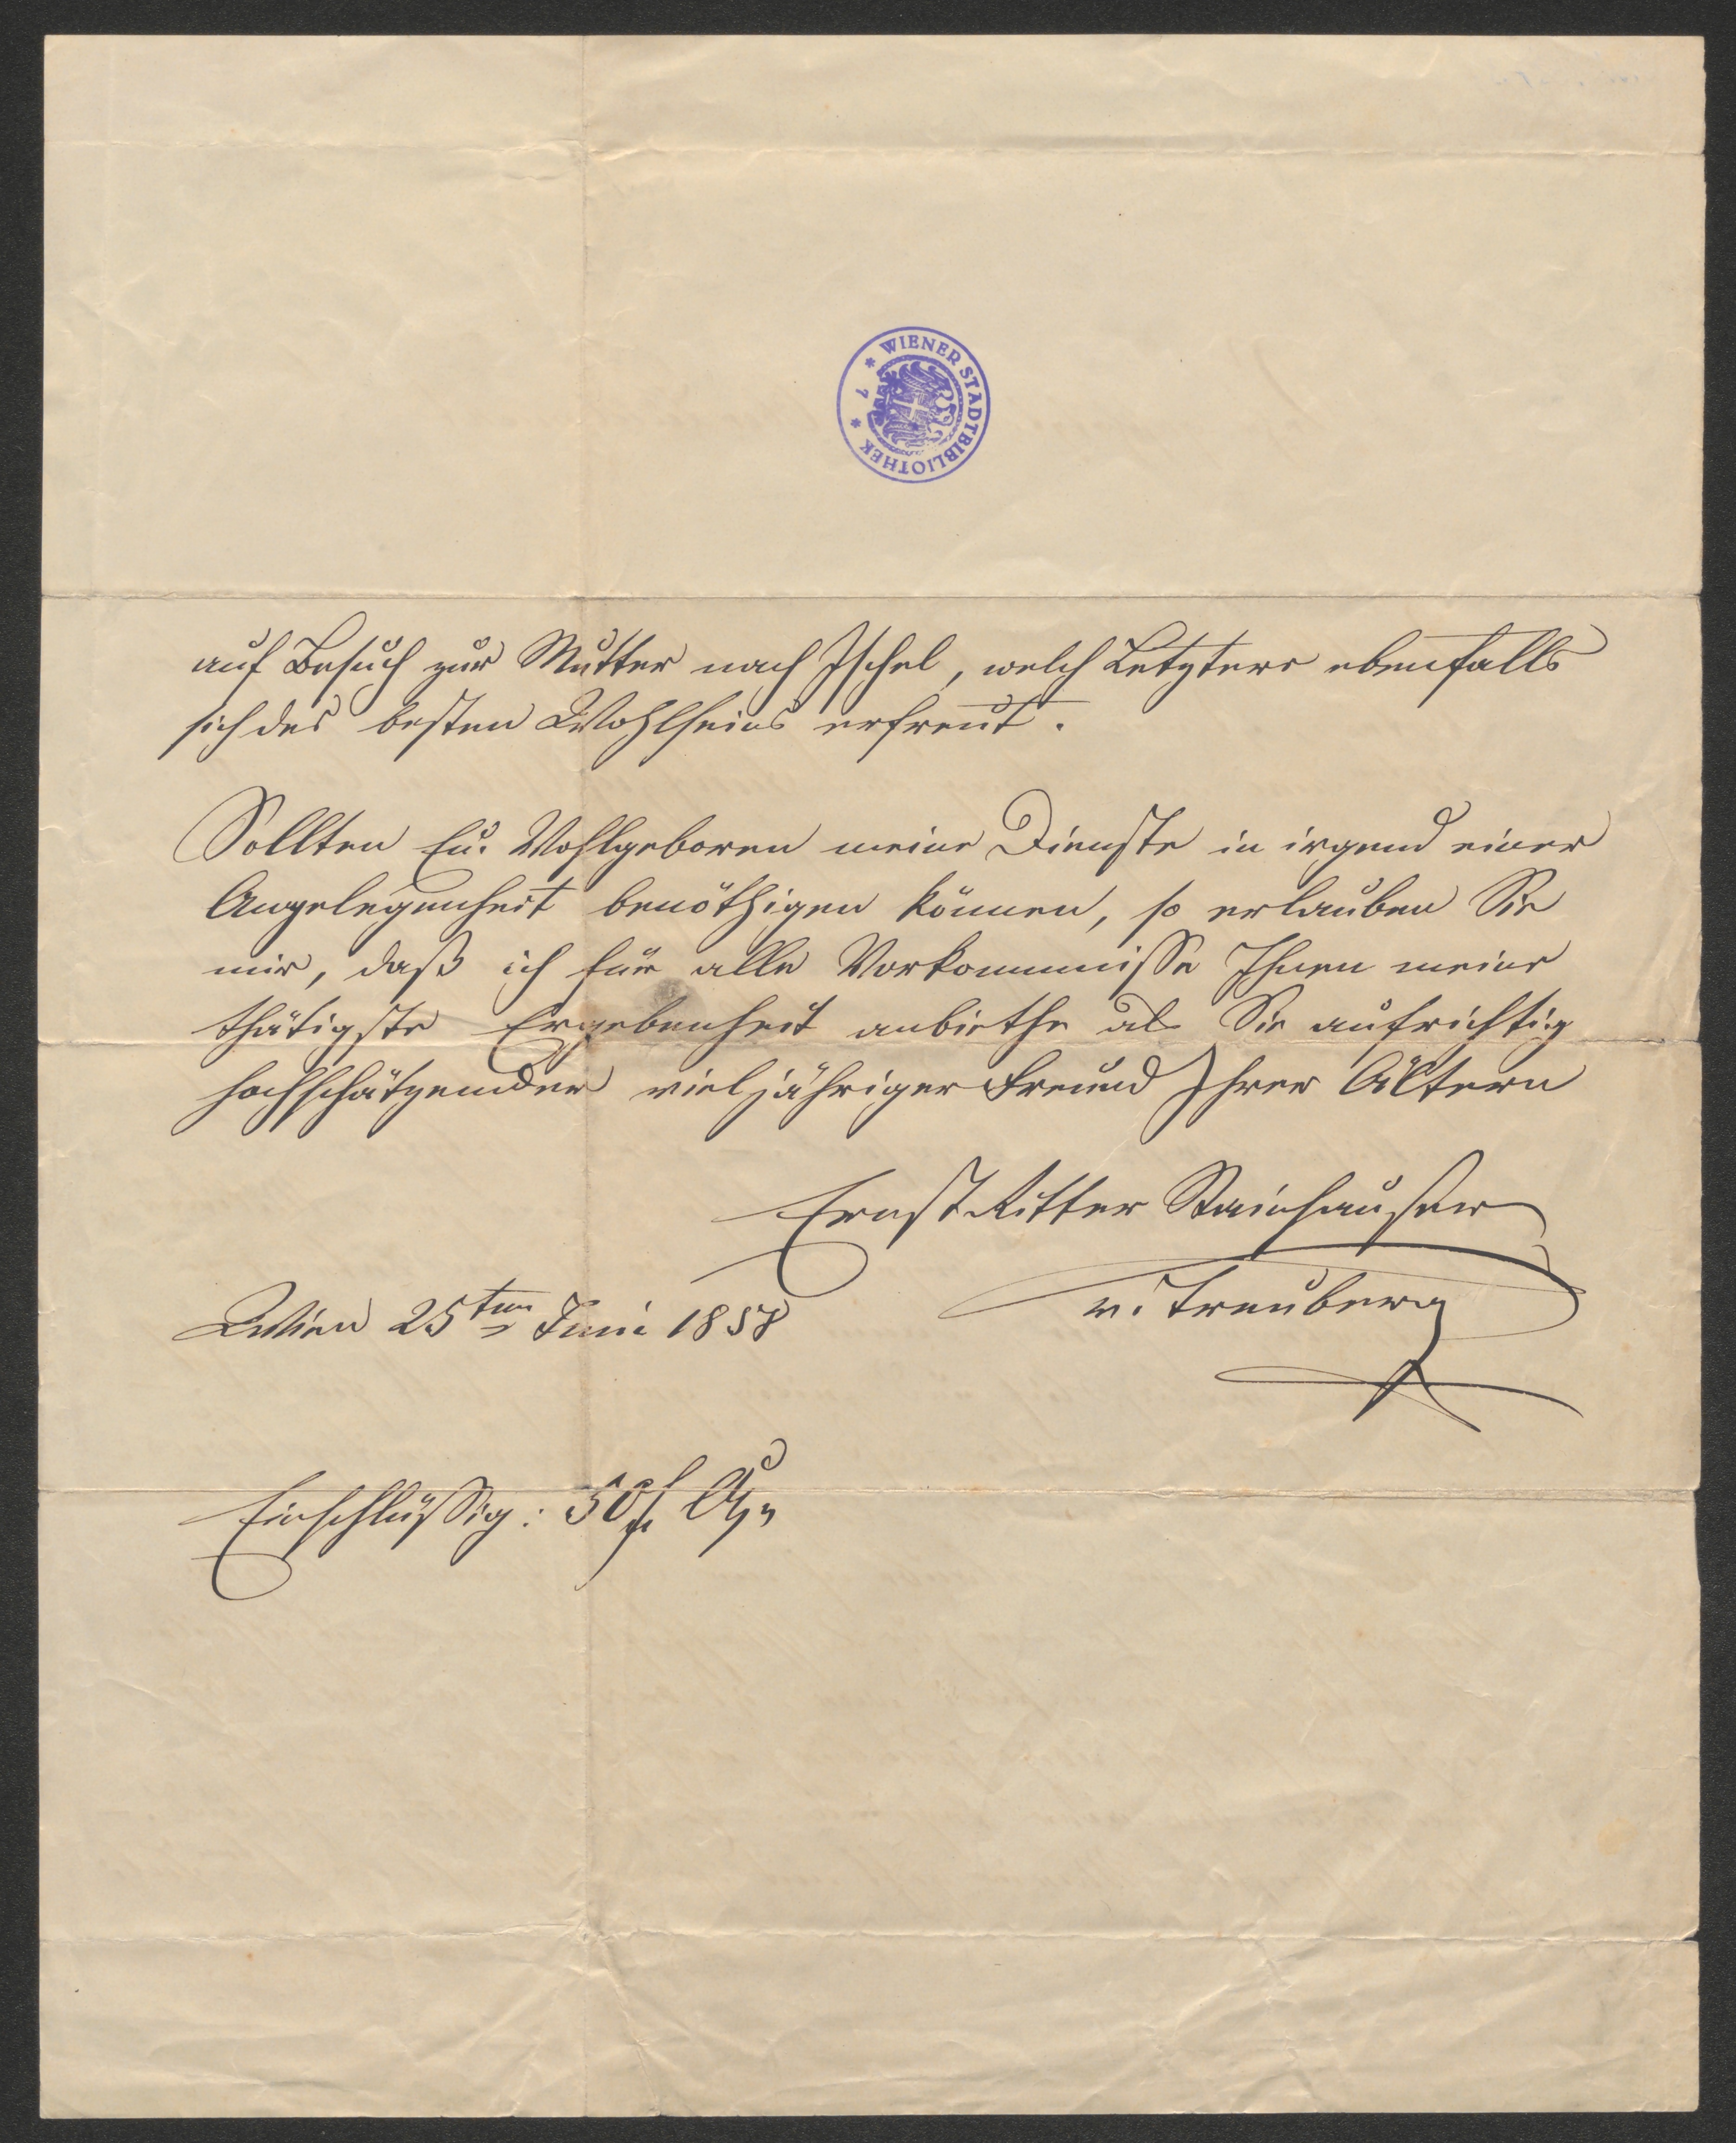 WIENER STADTBIBLIOTHEK
auf Besuch zur Mutter nach Ischel, welch Letztere ebenfalls
sich des besten Wohlseins erfreut.
Sollten Eu. Wohlgeboren meine Dienste in irgend einer
Angelegenheit benöthigen können, so erlauben Sie
mir, daß ich für alle Vorkommnisse Ihnen meine
thätigste Ergebenheit anbiethe als Sie aufrichtig
hochschätzender vieljähriger Freund Ihrer Ältern
Ernst Ritter Stainhauser
v. Treuberg
Wien 25ten Juni 1858
Einschlüssig: 50f